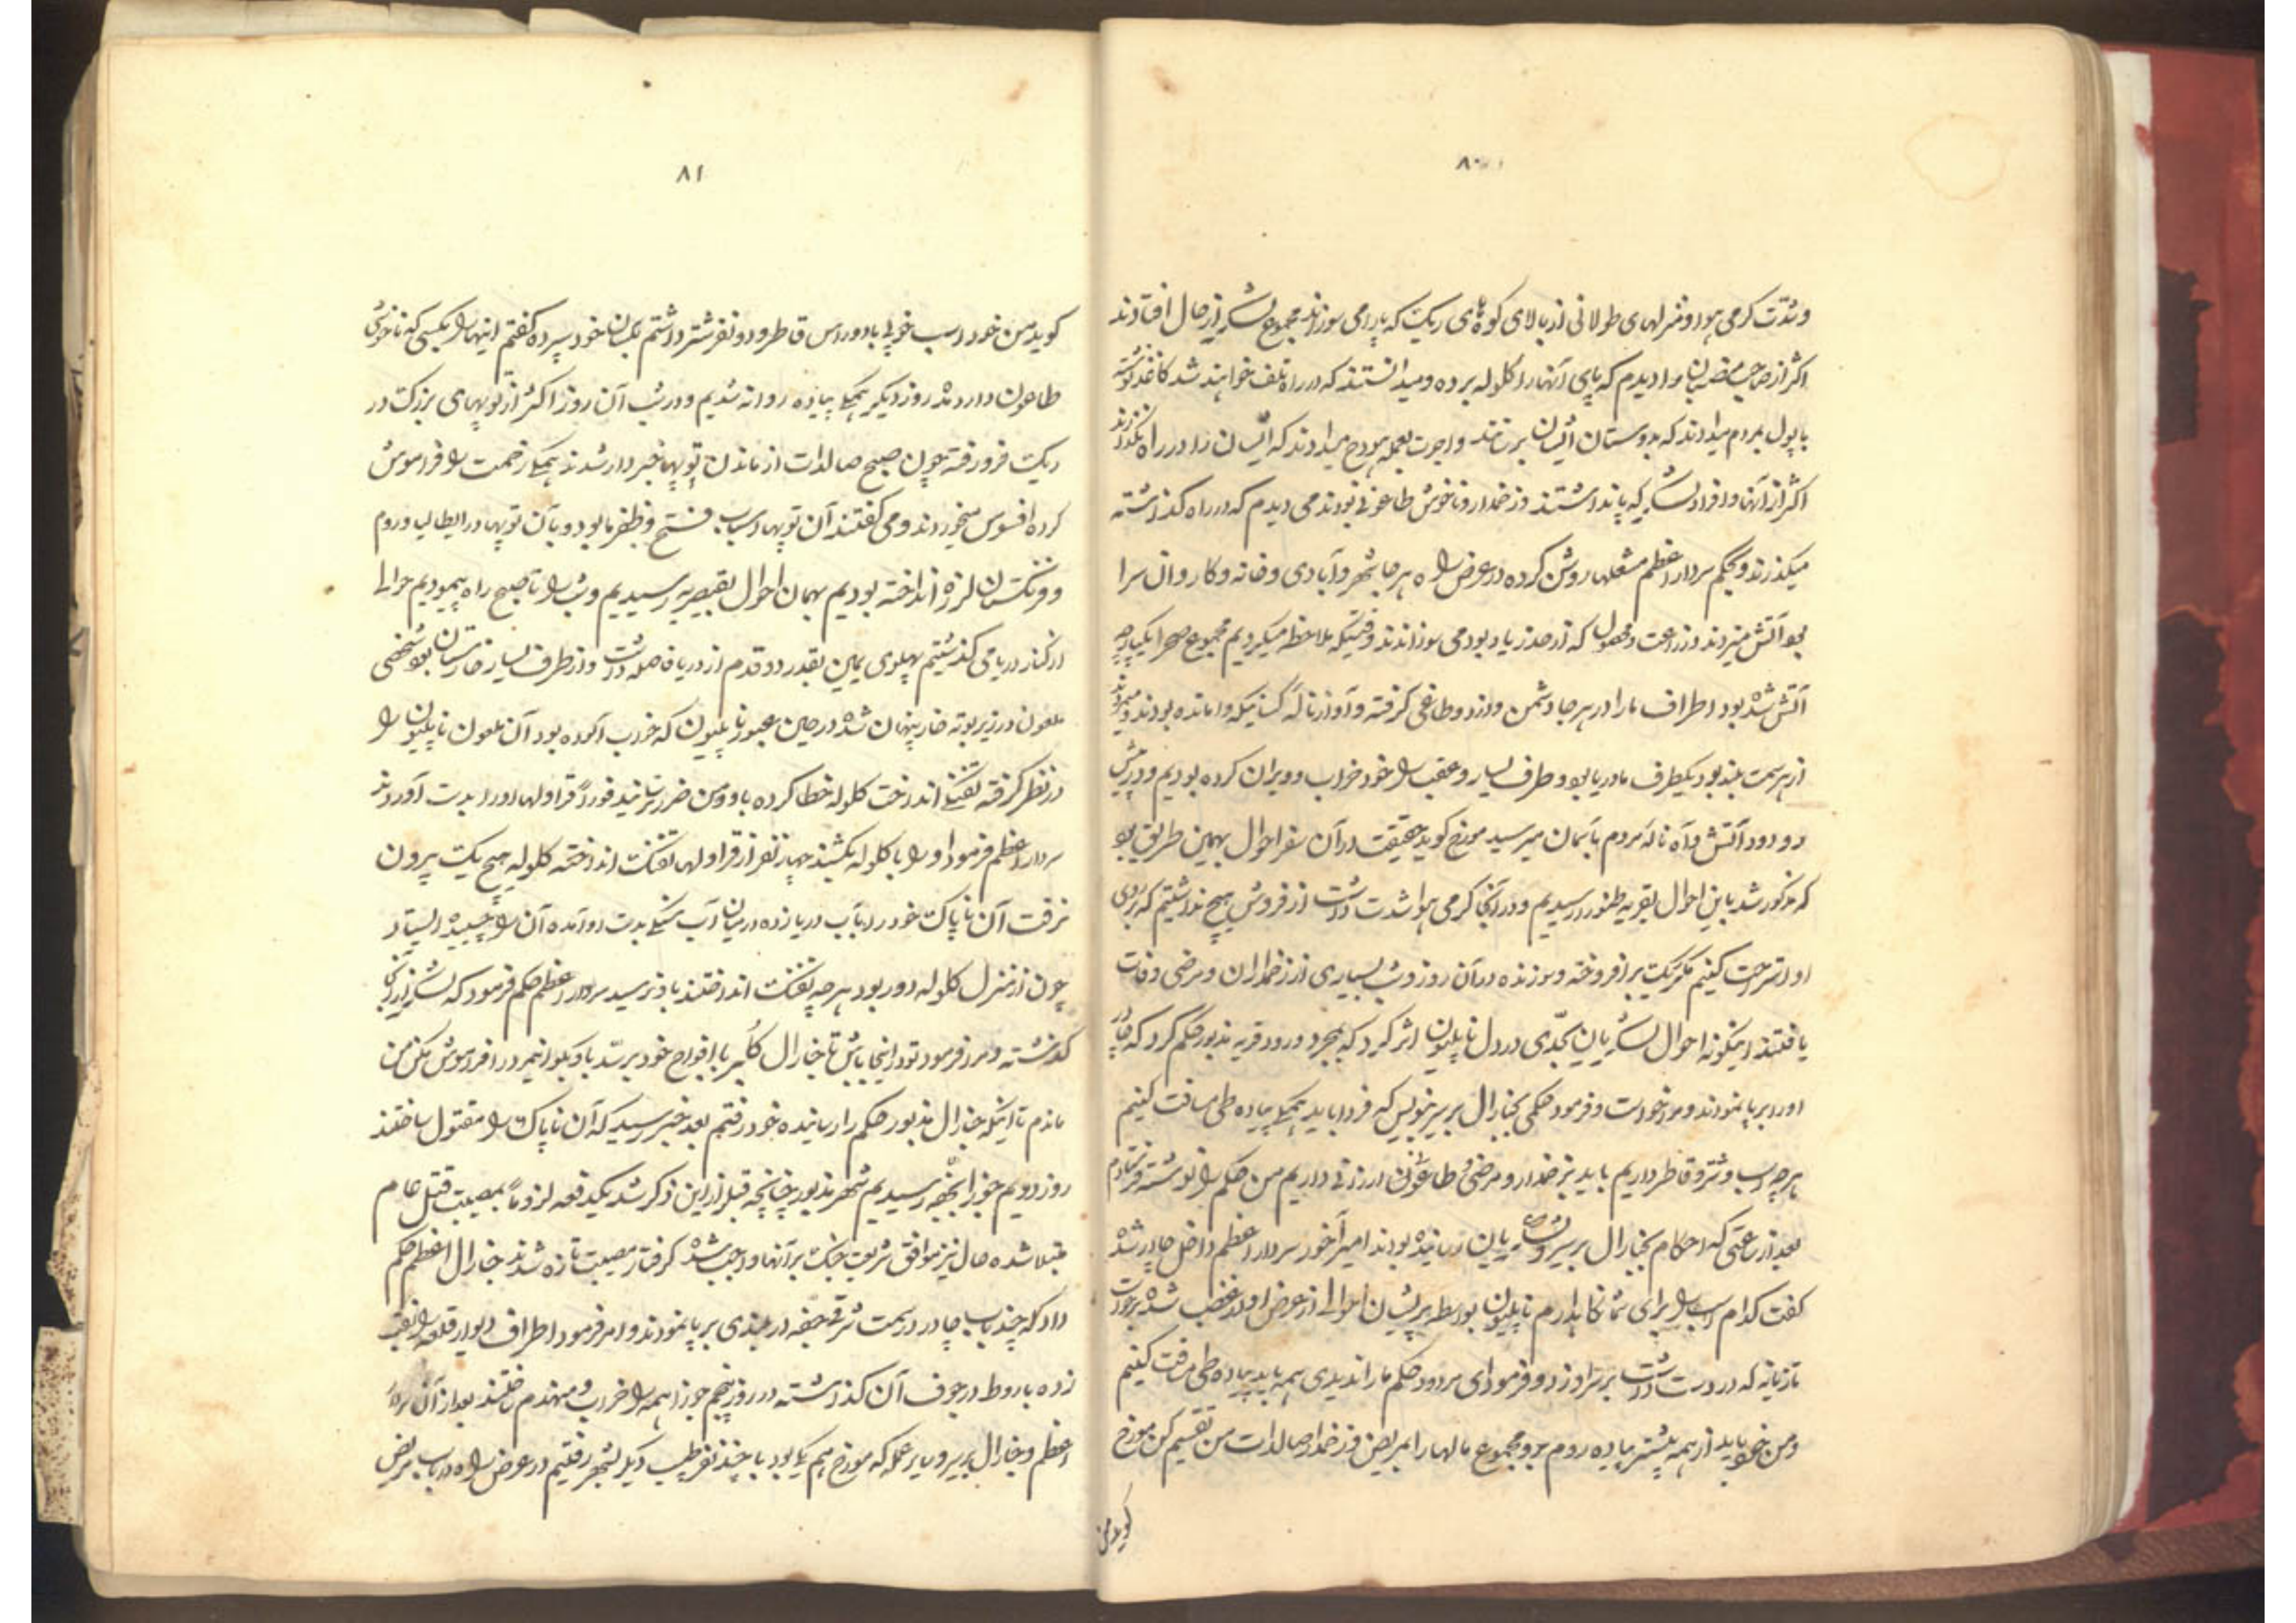 ۸۰
وشدّت کرمی هوا و منزلهای طولانی از بالای کوه‌های ریک که پا را می سوزاند مجموع لشکر از حال افتادند
اکثر از صاحب منصبان را دیدم که پای آنها را کلوله برده و میدانستند که در راه تلف خواهند شد کاغذ نوشته
با پول بمردم میدادند که بدوستان ایشان برسانند و اجرت بعمله هودج میدادند که ایشان را در راه نگذارند
اکثر از آنها و افراد لشکر که پا نداشتند و زخمدار و ناخوش طاعونی بودند می دیدم که در راه کذاشته
میکذرند و بحکم سردار اعظم مشعلها روشن کرده در عرض راه هر جا شهر و آبادی و خانه و کاروان سرا
بود آتش میزدند و زراعت و محصول که از حد زیاد بود می سوزاندند وقتیکه ملاحظه میکردیم مجموع صحرا یکپارچه
آتش شده بود اطراف ما را در هر جا دشمن و دزد و طاغی کرفته و آواز ناله کسانیکه وامانده بودند و میمردند
از هر سمت بلند بود یکطرف ما دریا بود و طرف یسار و عقب را خود خراب و ویران کرده بودیم و در پیش
دود آتش و آه ناله مردم بآسمان میرسید مورخ کوید حقیقت در آن سفر احوال بهمین طریق بود
که مذکور شد باین احوال بقریه طنطوره رسیدیم و در آنجا کرمی هوا شدت داشت از فروش هیچ نداشتیم که بروی
او استراحت کنیم مکر ریک بر افروخته و سوزنده در آن روز و شب بسیاری از زخمداران و مرضی وفات
یافتند اینکونه احوال لشکریان بحدّی در دل ناپلیون اثر کرد که بمجرد ورود قریه مذبور حکم کرد که چادر
او را بر پا نمودند و مرا خواست و فرمود حکمی بجنارال برسیر بنویس که فردا باید همکی پیاده طی مسافت کنیم
هر چه اسب و شتر و قاطر داریم باید بزخمدار و مرضی و طاعون ارزانی داریم من حکم را نوشته فرستادم
بعد از ساعتی که احکام بجنارال برسیر و لشکریان رسانیده بودند امیر آخور سردار اعظم داخل چادر شده
کفت کدام اسب را برای شما نکاه بدارم ناپلیون بواسطه پریشان احوالی از عرض او در غضب شده بر جست
تازیانه که در دست داشت بر سر او زد و فرمود ای مردود حکم ما را ندیدی همه باید پیاده طی مسافت کنیم
و من خود باید از همه پیشتر پیاده روم برو مجموع مالها را بمریض و زخمدار صالدات من تقسیم کن مورخ
کوید من
۸۱
کوید من خود اسب خوبی با دو راس قاطر و دو نفر شتر داشتم بکسان خود سپرده کفتم اینها را بکسی که ناخوشی
طاعون دارد روز دیکر همکی پیاده روانه شدیم و در شب آن روز اکثر از توپهای بزرک در
ریک فرو رفته چون صبح صالدات از ماندن توپها خبردار شدند همکی زحمت را فراموش
کرده افسوس میخوردند و می کفتند آن توپها اسباب فتح و ظفر ما بود و با آن توپها در ایطالیا و روم
و فرنکستان لرزه انداخته بودیم بهمان احوال بقیصریه رسیدیم و شب را تا صبح راه پیمودیم
از کنار دریا می کذشتیم پهلوی یمین بقدر دو قدم از دریا فاصله داشت و از طرف یسار خارستان بود شخصی
ملعون در زیر بوته خار پنهان شده در حین عبور ناپلیون که خواب آلوده بود آن ملعون ناپلیون را
در نظر کرفته تفنک انداخت کلوله خطا کرده باو و من ضرر نرسانید فوراً قراولها او را بدست آوردند
سردار اعظم فرمود او را با کلوله بکشند چهار نفر از قراولها تفنک انداخته کلوله هیچ یک بیرون
نرفت آن ناپاک خود را بآب دریا زده در میان آب سنکی بدست او آمده آن را چسبیده ایستاد
چون از منزل کلوله دور بود هر چه تفنک انداختند باو نرسید سردار اعظم حکم فرمود که لشکر از آنجا
کذشته و مرا فرمود تو در اینجا باش تا جنارال کلبر با افواج خود برسد باو بکو این مردرا فراموش نکن من
ماندم تا اینکه جنارال مذبور حکم را رسانیده خود رفتم بعد خبر رسید که آن ناپاک را مقتول ساختند
روز دویم جوزا بحیفه رسیدیم شهر مذبور چنانچه قبل از این ذکر شد یکدفعه لزوماً بمصیبت قتل عام
مبتلا شده حال نیز موافق شریعت جنک بر آنها واجب شده کرفتار مصیبت تازه شدند جنارال اعظم حکم
داد که چند باب چادر در سمت شرقی حیفه در بلندی بر پا نمودند و امر فرمود اطراف دیوار قلعه را نقب
زده باروط در جوف آن کذاشته در روز پنجم جوزا همه را خراب و منهدم ساختند بعد از آن سردار
اعظم و جنارال برسیر و سایر عمله که مورخ هم یکی بود با چند نفر طبیب دیکر بشهر رفتیم در عرض راه در باب مریض